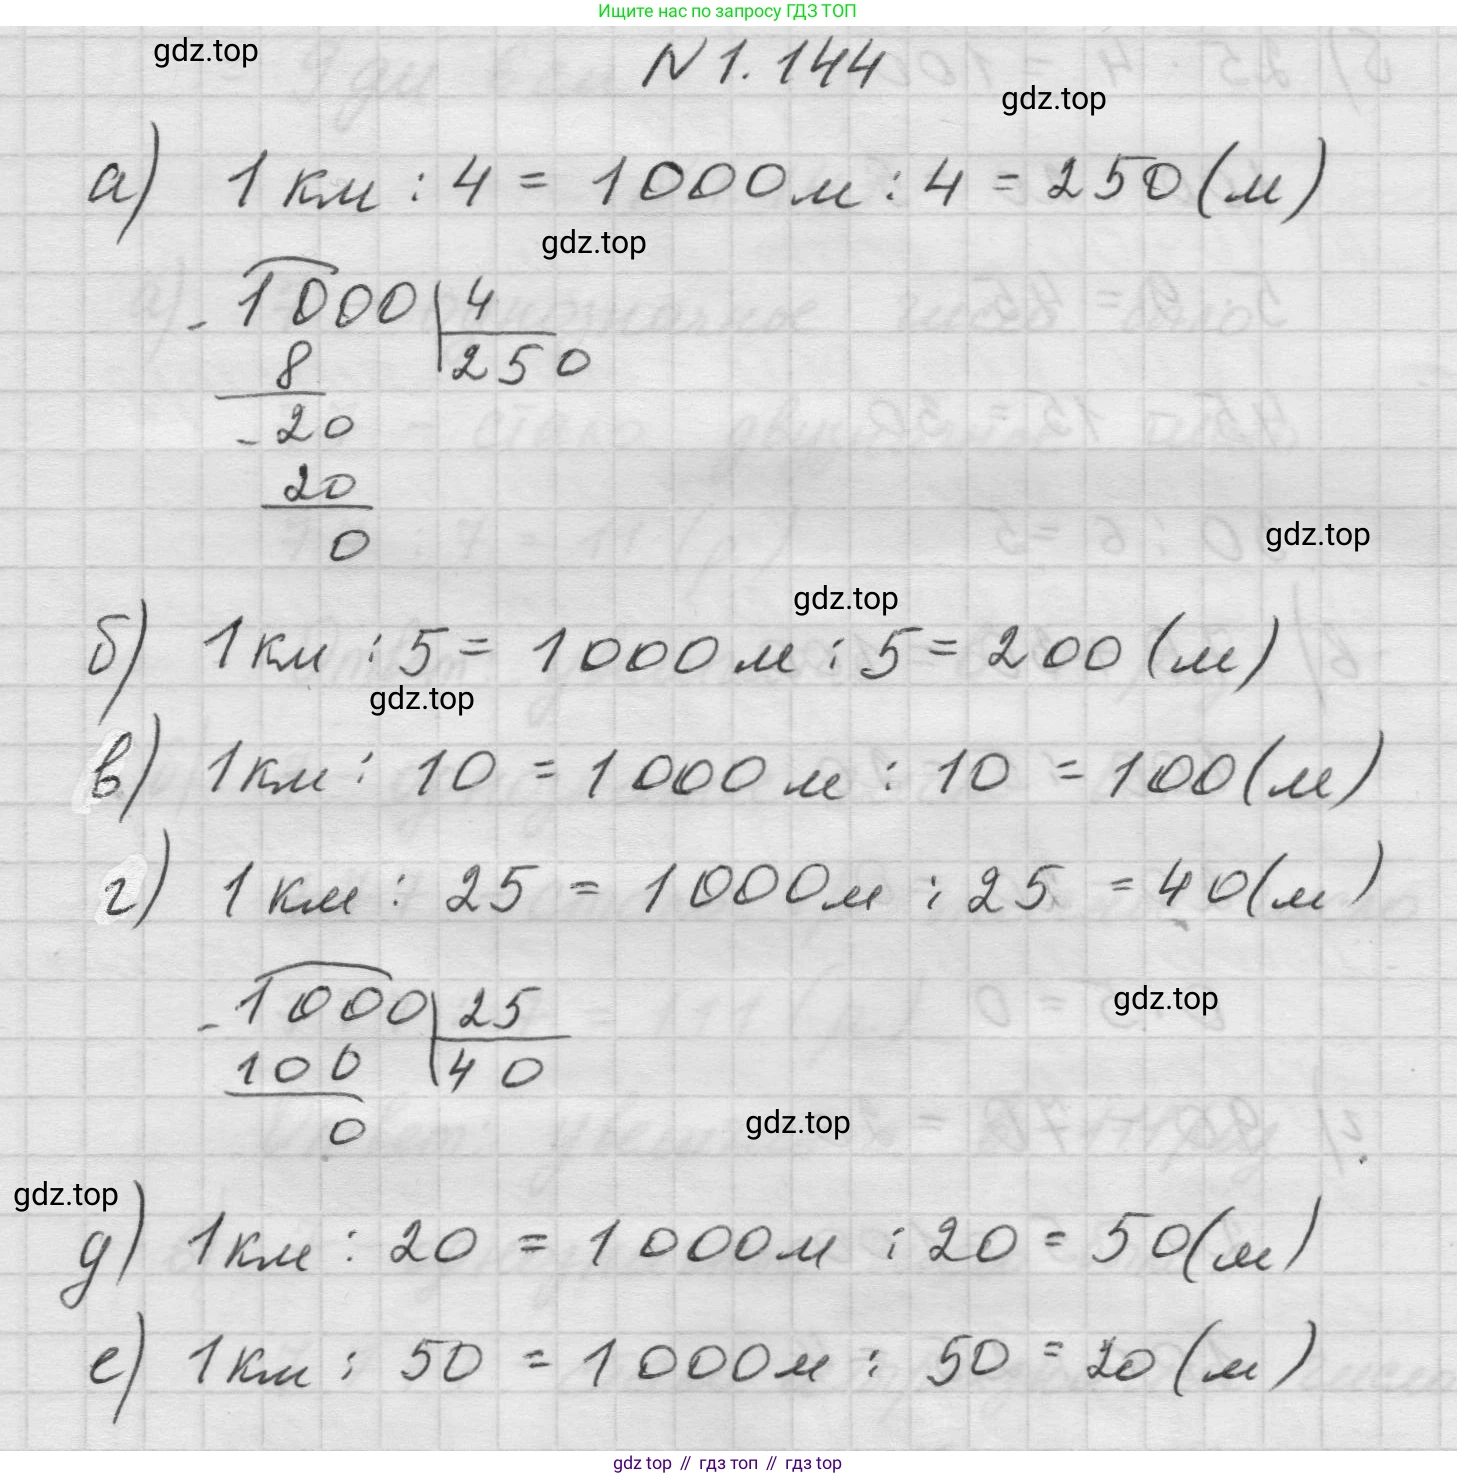 Ищите нас по запросу ГДЗ ТОП
gdz.top
N 1. 144
gdz.top
а) 1 км : 4 = 1000 м : 4 = 250 (м)
gdz.top
- 1000 | 4
8 250
- 20
20
0
gdz.top
gdz.top
б) 1 км : 5 = 1000 м : 5 = 200 (м)
gdz.top
в) 1 км : 10 = 1000 м : 10 = 100 (м)
г) 1 км : 25 = 1000 м : 25 = 40 (м)
- 1000 | 25
gdz.top
100 40
0
gdz.top
gdz.top
д) 1 км : 20 = 1000 м : 20 = 50 (м)
е) 1 км : 50 = 1000 м : 50 = 20 (м)
gdz top // гдз топ // гдз top